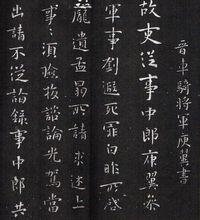 晉車騎將軍庾翼書
故吏從事中郎庾翼參
軍事劉遐死罪白昨所啓
龐遺孟所請求上
事〻須檢校諮論光駕當
出請不從論錄事中郎共